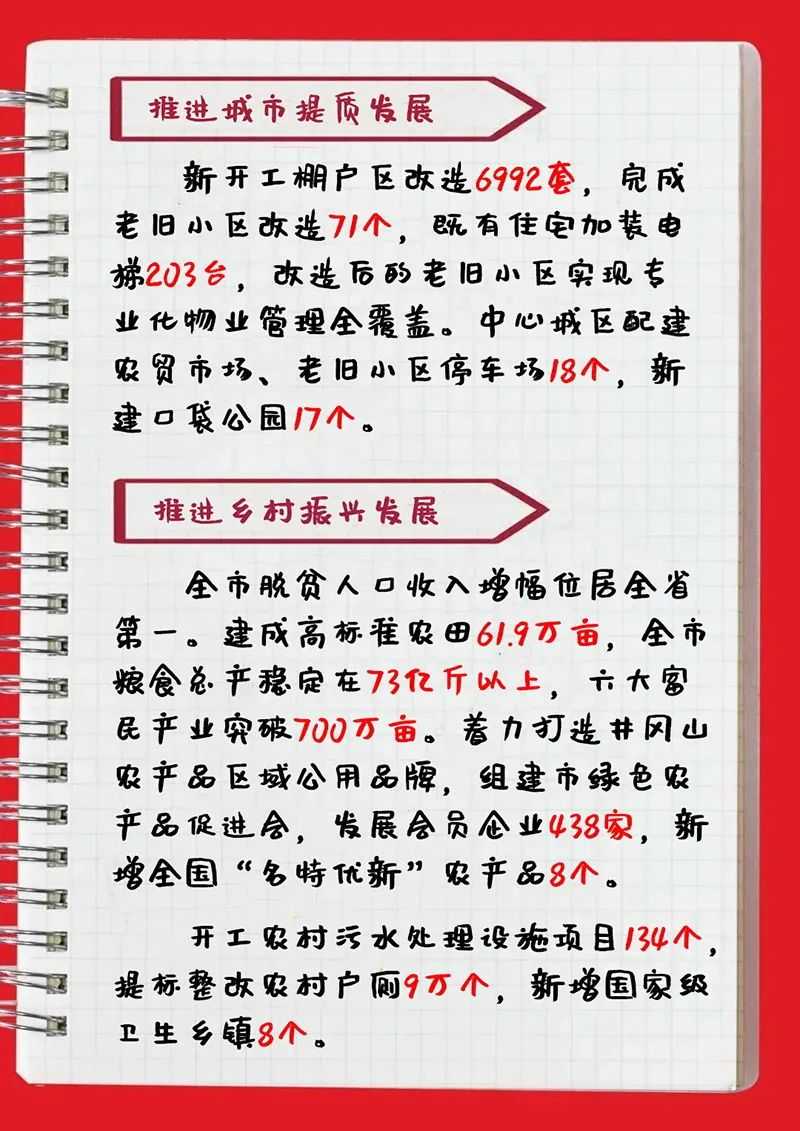 推进城市提质发展
新开工棚户区改造6992套，完成
老旧小区改造71个，既有住宅加装电
梯203台，改造后的老旧小区实现专
业化物业管理全覆盖。中心城区配建
农贸市场、老旧小区停车场18个，新
建口袋公园17个。
推进乡村振兴发展
全市脱贫人口收入增幅位居全省
第一。建成高标准农田61.9万亩，全市
粮食总产稳定在73亿斤以上，六大富
民产业突破700万亩。着力打造井冈山
农产品区域公用品牌，组建市绿色农
产品促进会，发展会员企业438家，新
增全国“名特优新”农产品8个。
开工农村污水处理设施项目134个，
提标整改农村户厕9万个，新增国家级
卫生乡镇8个。